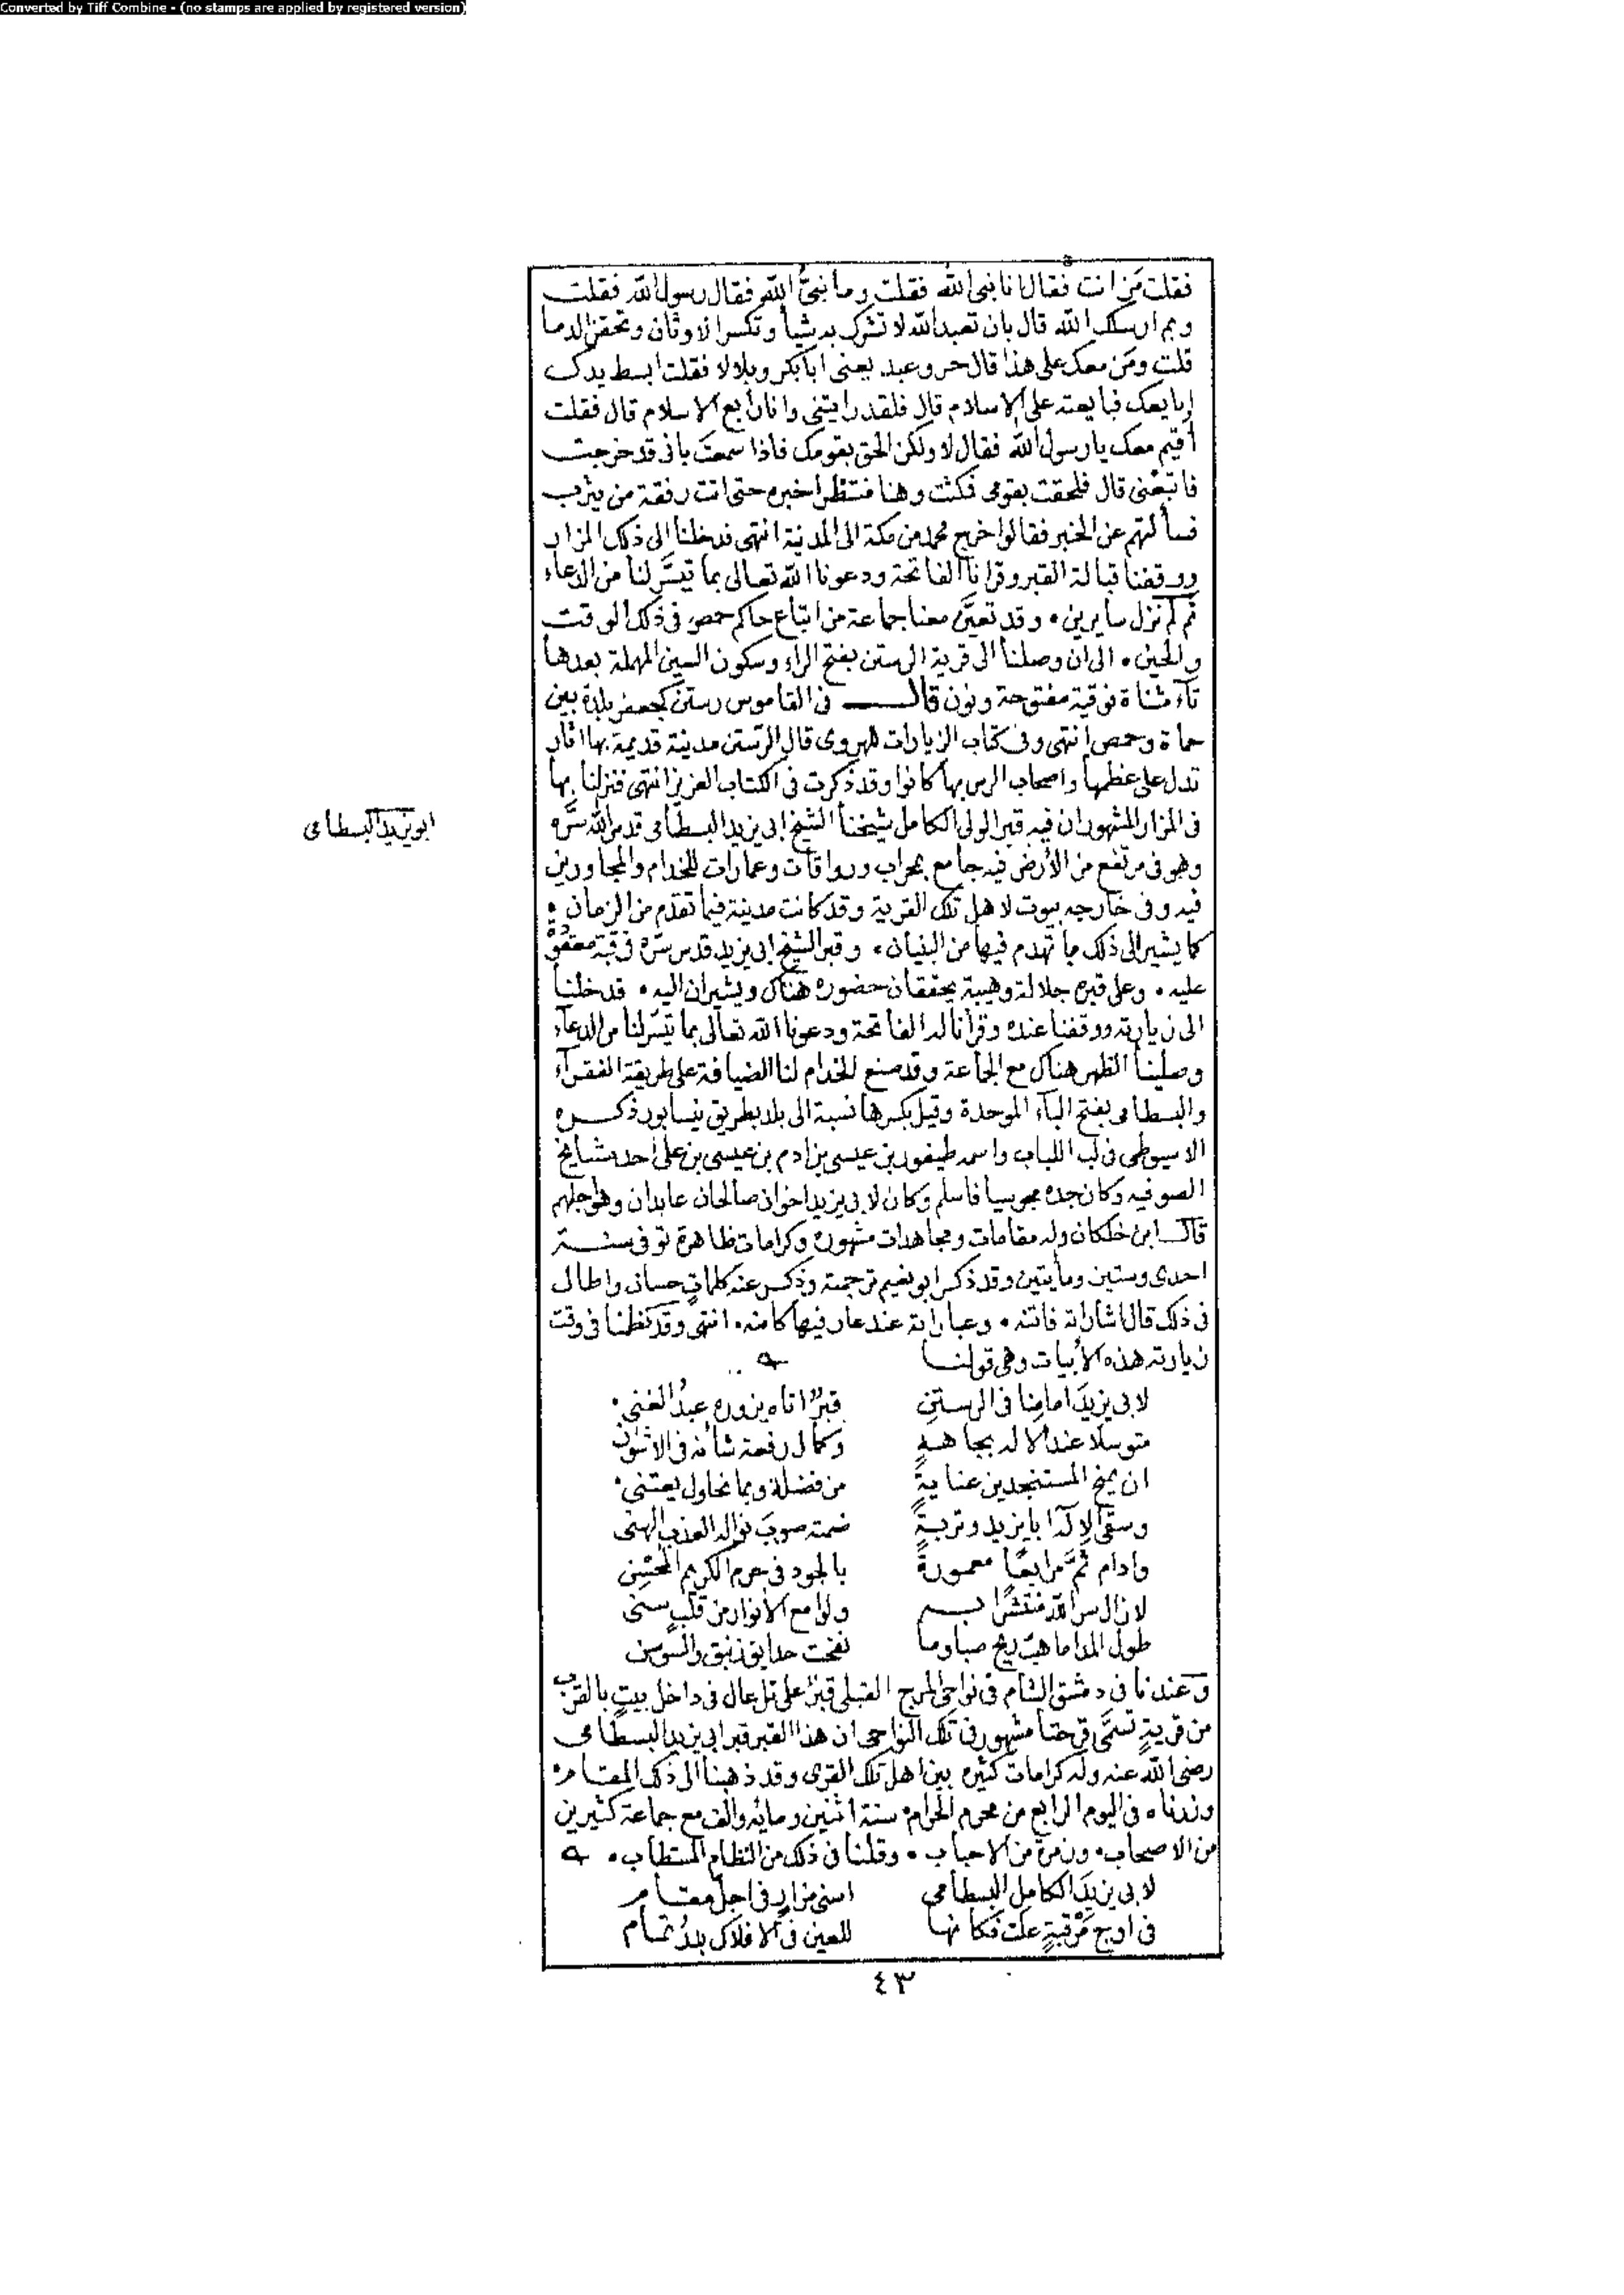 Converted by Tiff Combine - (no stamps are applied by registered version)
فقلت مَن انت فقال انا نبى الله فقلت وما نبىُّ الله فقال رسول الله فقلت
وبم ارسلك الله قال بان تعبد الله لا تشرك به شيأ وتكسر الاوثان وتحقن الدما
قلت ومَن معك على هذا قال حر وعبد يعنى ابا بكر وبلالا فقلت ابسط يدك
ابايعك فبايعته على الاسلام قال فلقد رايتنى وانا رابع الاسلام قال فقلت
أقيم معك يا رسول الله فقال لا ولكن الحق بقومك فاذا سمعت بانى قد خرجت
فاتبعنى قال فلحقت بقومى فمكثت وهنا منتظرا خبره حتى اتت رفقة من يثرب
فسألتهم عن الخبر فقالوا خرج محمد من مكة الى المدينة انتهى فدخلنا الى ذلك المزار
ووقفنا قبالة القبر وقرانا الفاتحة ودعونا الله تعالى بما تيسَّر لنا من الدعاء
ثم لم نزل سايرين ٠ وقد تعيَّن معنا جماعة من اتباع حاكم حمص فى ذلك الوقت
والحين ٠ الى ان وصلنا الى قرية الرستن بفتح الراء وسكون السين المهملة بعدها
تآء مثناة فوقية مفتوحة ونون قال فى القاموس رستن كجعفر بلدة بين
حماة وحمص انتهى وفى كتاب الزيارات للهروى قال الرَّستن مدينة قديمة بها اثار
تدل على عظمها واصحاب الرس بها كانوا وقد ذكرت فى الكتاب العزيز انتهى فنزلنا بها
فى المزار المشهور ان فيه قبر الولى الكامل شيخنا الشيخ ابى يزيد البسطامى قدس الله سَّره
ابو يزيد البسطامى
وهو فى مرتفع من الأرض فيه جامع بمحراب ورواقات وعمارات للخدام والمجاورين
فيه وفى خارجه بيوت لاهل تلك القرية وقد كانت مدينة فيما تقدم من الزمان ٠
كما يشير الى ذلك ما تهدم فيها من البنيان ٠ وقبر الشيخ ابى يزيد قدس سره فى قبة معقودة
عليه ٠ وعلى قبره جلالة وهيبة يحققان حضوره هناك ويشيران اليه ٠ فدخلنا
الى زيارته ووقفنا عنده وقرأنا له الفاتحة ودعونا الله تعالى بما تيسر لنا من الدعآء
وصلينا الظهر هناك مع الجماعة وقد صنع الخدام لنا الضيافة على طريقة الفقرآء
والبسطامى بفتح البآء الموحدة وقيل بكسرها نسبة الى بلد بطريق نيسابور ذكره
الاسيوطى فى لب اللباب واسمه طيفور بن عيسى بن ادم بن عيسى بن على احد مشايخ
الصوفيه وكان جده مجوسيا فاسلم وكان لابى يزيد اخوان صالحان عابدان وهو اجلهم
قال ابن خلكان وله مقامات ومجاهدات مشهوره وكرامات ظاهرة توفى سنة
احدى وستين ومأيتين وقد ذكر ابو نعيم ترجمته وذكر عنه كلماتٍ حسان واطال
فى ذلك قال اشاراته فاتنه ٠ وعباراته عند عارفيها كامنه ٠ انتهى وقد نظمنا فى وقت
زيارته هذه الأبيات وهى قولنا
لابى يزيدَ امامِنا فى الرستنِ قبرٌ اتاه يزوره عبدُ الغنى ٠
متوسلا عند الاله بجاههِ وكمال رفعة شأنه فى الاشئون
ان يمنح المستنجدين عنايةً من فضله وبما نحاول يعتنى ٠
وسقى الالهُ ابا يزيد وتربةً ضمته صوبَ نواله العذب الهنى
وادام ثَمَّ مرابعًا معمورةً بالجود فى حرم الكريم المحسنِ
لازال سر الله منتشرا به ولوامع الأنوار من قلبٍ سنى
طول المدا ما هبَّ ريح صبا وما نفحت حدايق زنبق والسوسن
وعندنا فى دمشق الشام فى نواحى المرج القبلى قبرٌ على تل عال فى داخل بيتٍ بالقرب
من قريةٍ تسمَّى قرحتا مشهور فى تلك النواحى ان هذا القبر قبر ابى يزيد البسطامى
رضى الله عنه وله كرامات كثيره بين اهل تلك القرى وقد ذهبنا الى ذلك المقام ٠
وزرناه فى اليوم الرابع من محرم الحرام ٠ سنة اثنين ومايه والف مع جماعة كثيرين
من الاصحاب ٠ وزمرة من الاحباب ٠ وقلنا فى ذلك من النظام المستطاب ٠
لابى يزيدَ الكامل البسطامى اسنى مزارٍ فى اجلّ مقام
فى اوج مَرْقبةٍ علت فكانها للعين فى الافلاك بدرُ تمام
٤٣